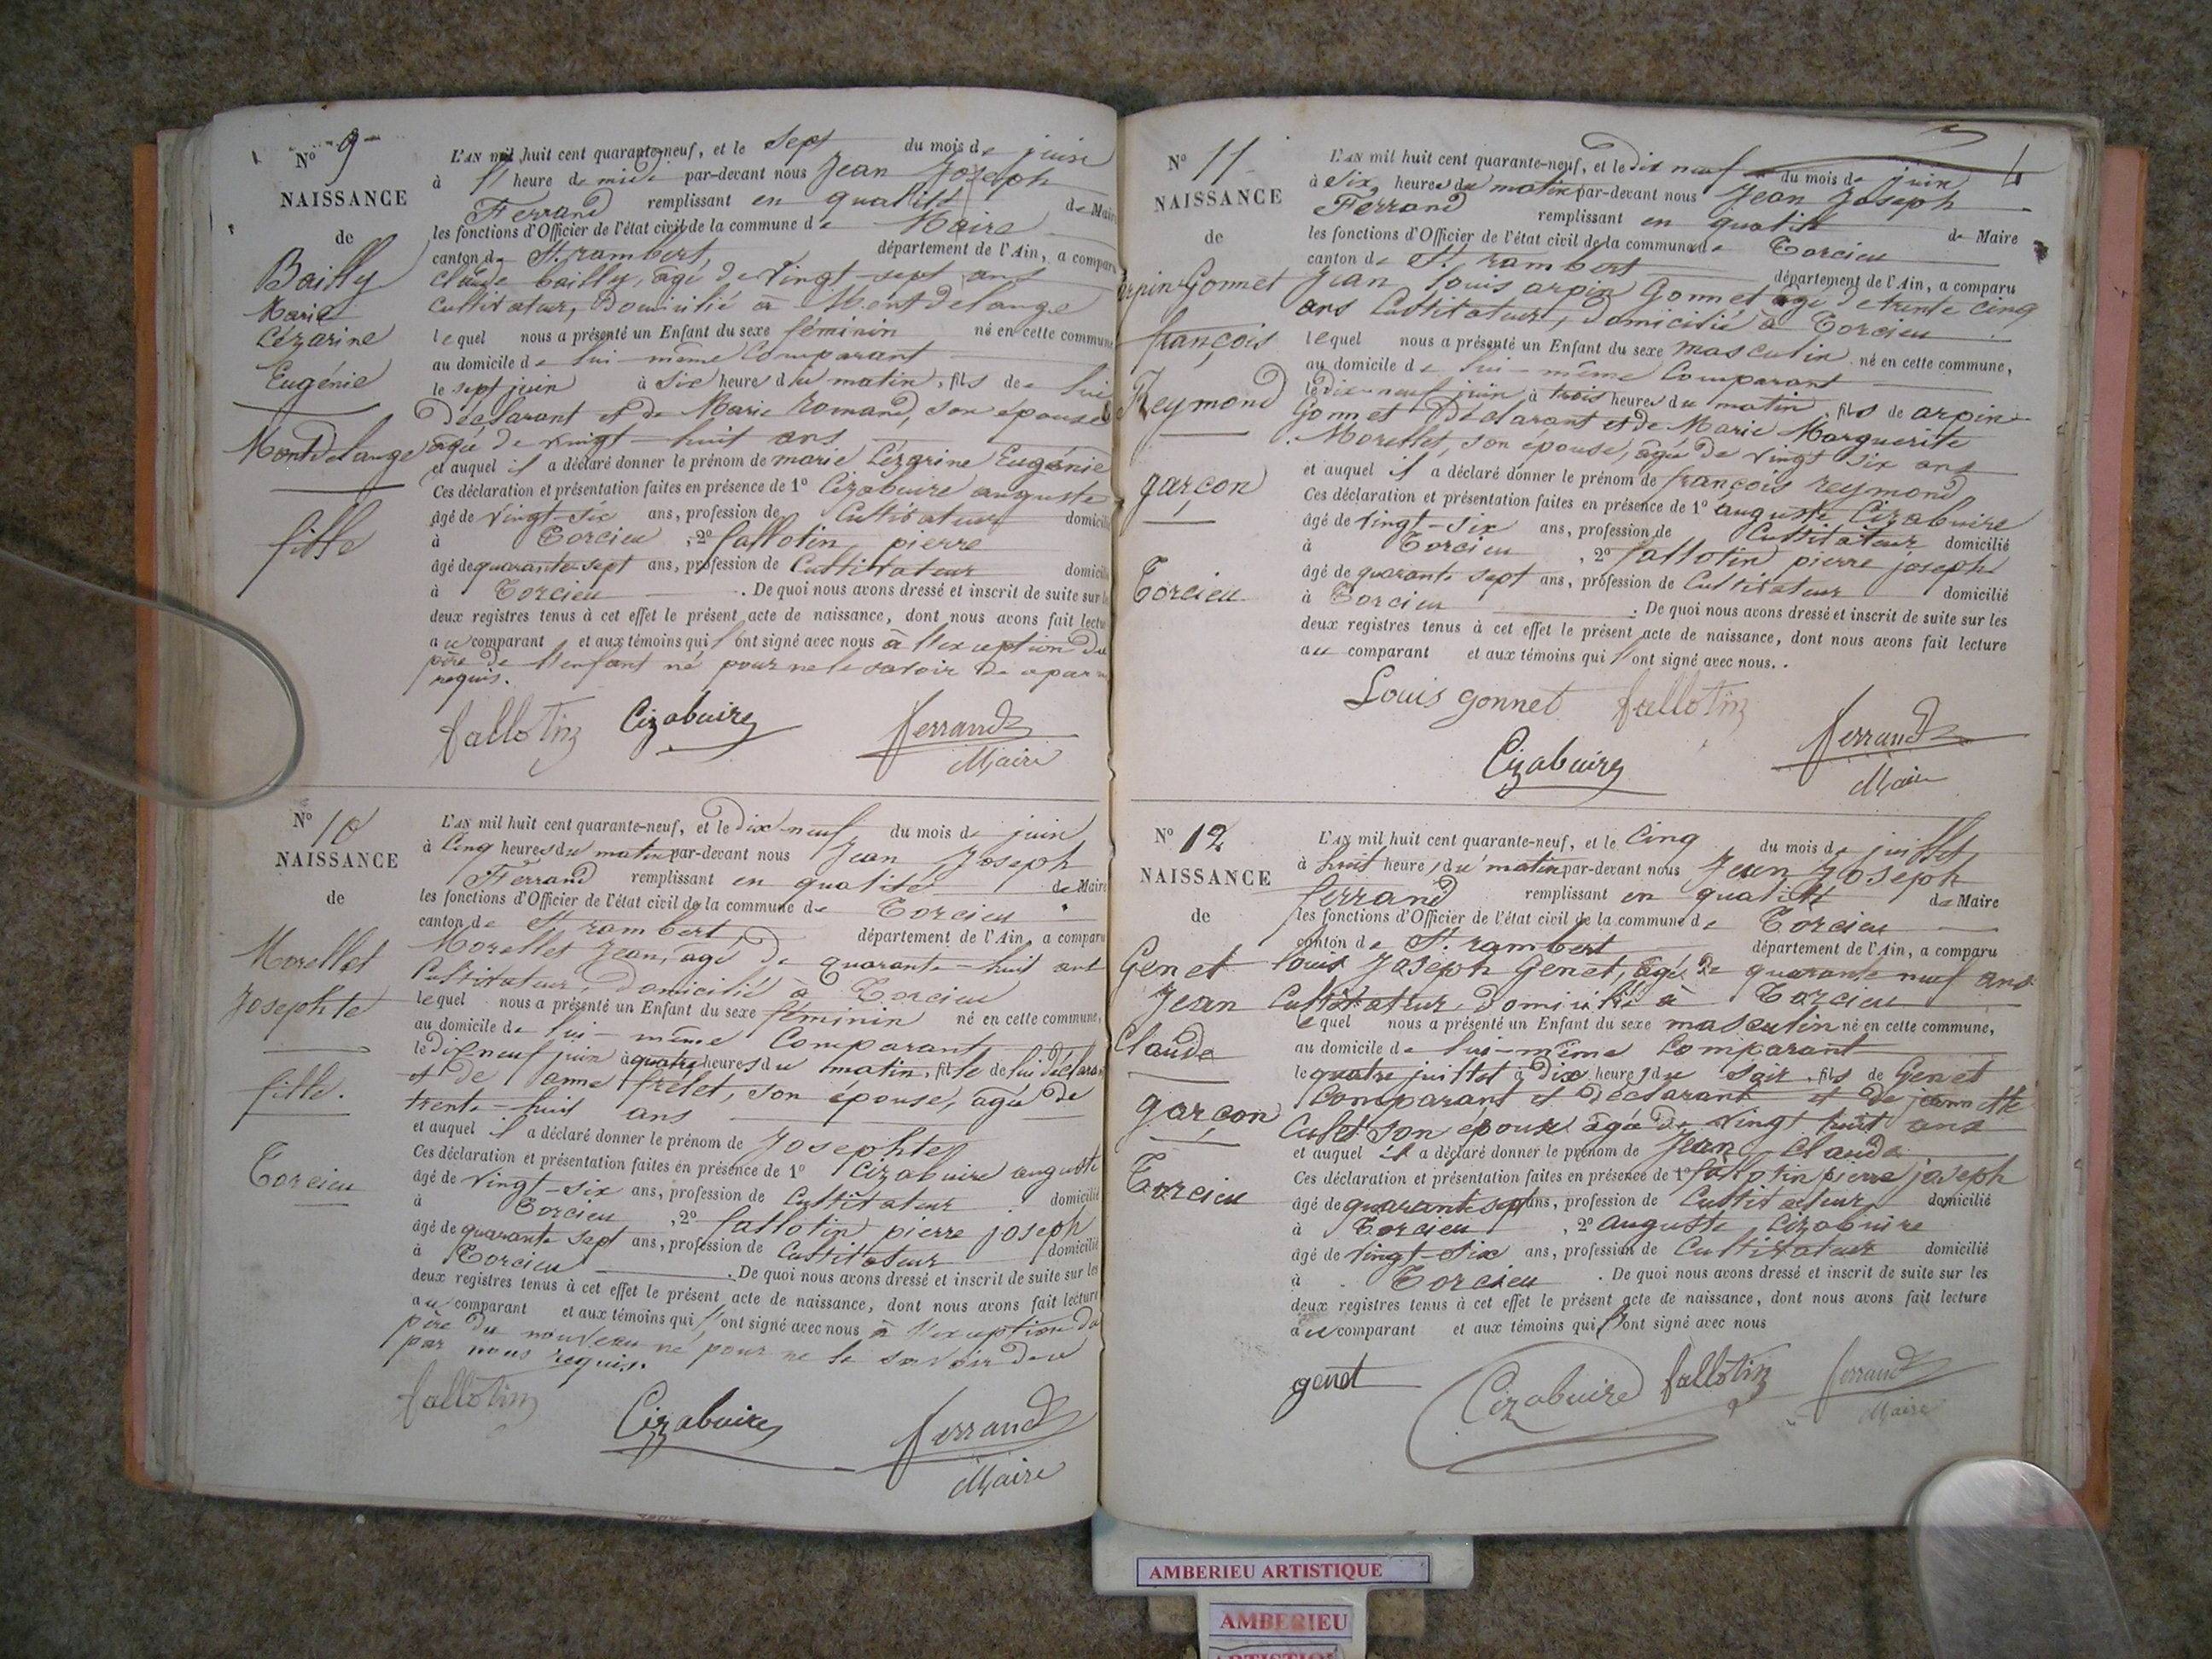 N° 9
NAISSANCE
de
Bailly
Marie
Cézarine
Eugénie
Montdelange
fille
L'AN mil huit cent quarante-neuf, et le sept du mois de juin
à 11 heure de midi par-devant nous Jean Joseph
Ferrand remplissant en qualité de Maire
les fonctions d'Officier de l'état civil de la commune de Maire
canton de St. rambert, département de l'Ain, a comparu
claude bailly, agé de vingt-sept ans
Cultivateur, Domicilié à Montdelange
lequel nous a présenté un Enfant du sexe féminin né en cette commune
au domicile de lui-même Comparant
le sept juin à six heures du matin, fils de lui
Déclarant et de Marie Romand, son épouse
agée de vingt-huit ans
et auquel il a déclaré donner le prénom de marie Cézarine Eugénie
Ces déclaration et présentation faites en présence de 1° Cizabuire auguste
âgé de vingt-six ans, profession de Cultivateur domicilié
à Torcieu, 2° fallotin pierre
âgé de quarante-sept ans, profession de Cultivateur domicilié
à Torcieu. De quoi nous avons dressé et inscrit de suite sur les
deux registres tenus à cet effet le présent acte de naissance, dont nous avons fait lecture
au comparant et aux témoins qui l'ont signé avec nous à l'exception du
père de l'enfant né pour ne le savoir de a par
requis.
fallotin Cizabuire ferrand
Maire
N° 10
NAISSANCE
de
Morellet
Josephte
fille.
Torcieu
L'AN mil huit cent quarante-neuf, et le dix-neuf du mois de juin
à Cinq heures du matin par-devant nous Jean Joseph
Ferrand remplissant en qualité de Maire
les fonctions d'Officier de l'état civil de la commune de Torcieu
canton de St rambert département de l'Ain, a comparu
Morellet Jean, agé de quarante-huit ans
Cultivateur, Domicilié à Torcieu
lequel nous a présenté un Enfant du sexe féminin né en cette commune,
au domicile de lui-même Comparant
le dix neuf juin à quatre heures du matin, fille de lui déclarant
et de anne frélet, son épouse, agée de
trente-huit ans
et auquel il a déclaré donner le prénom de Josephte
Ces déclaration et présentation faites en présence de 1° Cizabuire auguste
âgé de vingt-six ans, profession de Cultivateur domicilié
à Torcieu, 2° fallotin pierre joseph
âgé de quarante sept ans, profession de Cultivateur domicilié
à Torcieu. De quoi nous avons dressé et inscrit de suite sur les
deux registres tenus à cet effet le présent acte de naissance, dont nous avons fait lecture
au comparant et aux témoins qui l'ont signé avec nous à l'exception du
père du nouveau né pour ne le savoir de a
par nous requis.
fallotin Cizabuire ferrand
Maire
N° 11
NAISSANCE
de
arpin Gonnet
françois
Reymond
garçon
Torcieu
L'AN mil huit cent quarante-neuf, et le dix neuf du mois de juin
à six heures du matin par-devant nous Jean Joseph
Ferrand remplissant en qualité de Maire
les fonctions d'Officier de l'état civil de la commune de Torcieu
canton de St. rambert département de l'Ain, a comparu
Jean Louis arpin Gonnet agé de trente cinq
ans Cultivateur, domicilié à Torcieu
lequel nous a présenté un Enfant du sexe masculin né en cette commune,
au domicile de lui-même Comparant
le dix-neuf juin à trois heures du matin, fils de arpin
Gonnet Déclarant et de Marie Marguerite
Morellet, son épouse, agée de vingt six ans
et auquel il a déclaré donner le prénom de françois reymond
Ces déclaration et présentation faites en présence de 1° auguste Cizabuire
âgé de vingt-six ans, profession de Cultivateur domicilié
à Torcieu, 2° fallotin pierre joseph
âgé de quarante sept ans, profession de Cultivateur domicilié
à Torcieu. De quoi nous avons dressé et inscrit de suite sur les
deux registres tenus à cet effet le présent acte de naissance, dont nous avons fait lecture
au comparant et aux témoins qui l'ont signé avec nous..
Louis gonnet fallotin
Cizabuire ferrand
Maire
N° 12
NAISSANCE
de
Genet
Jean
Claude
garçon
Torcieu
L'AN mil huit cent quarante-neuf, et le Cinq du mois de juillet
à huit heures du matin par-devant nous Jean Joseph
ferrand remplissant en qualité de Maire
les fonctions d'Officier de l'état civil de la commune de Torcieu
canton de St. rambert département de l'Ain, a comparu
louis Joseph Genet, âgé de quarante neuf ans
Cultivateur, domicilié à Torcieu
lequel nous a présenté un Enfant du sexe masculin né en cette commune,
au domicile de lui-même Comparant
le quatre juillet à dix heures du soir, fils de Genet
Comparant et déclarant et de jeannette
Culet son épouse agée de vingt huit ans
et auquel il a déclaré donner le prénom de Jean Claude
Ces déclaration et présentation faites en présence de 1° fallotin pierre joseph
âgé de quarante sept ans, profession de Cultivateur domicilié
à Torcieu, 2° auguste Cizabuire
âgé de vingt-six ans, profession de Cultivateur domicilié
à Torcieu. De quoi nous avons dressé et inscrit de suite sur les
deux registres tenus à cet effet le présent acte de naissance, dont nous avons fait lecture
au comparant et aux témoins qui l'ont signé avec nous
genet Cizabuire fallotin ferrand
Maire
AMBERIEU ARTISTIQUE
AMBERIEU
ARTISTIQUE